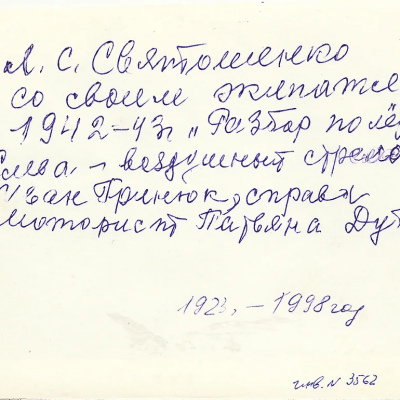 А. С. Святошенко
со своим экипаже
1942-43г „Разбор полё
Слева - воздушный стрело
Иван Гринюк, справа
моторист Татьяна Дут
1923, - 1998 год
инв. N 3562